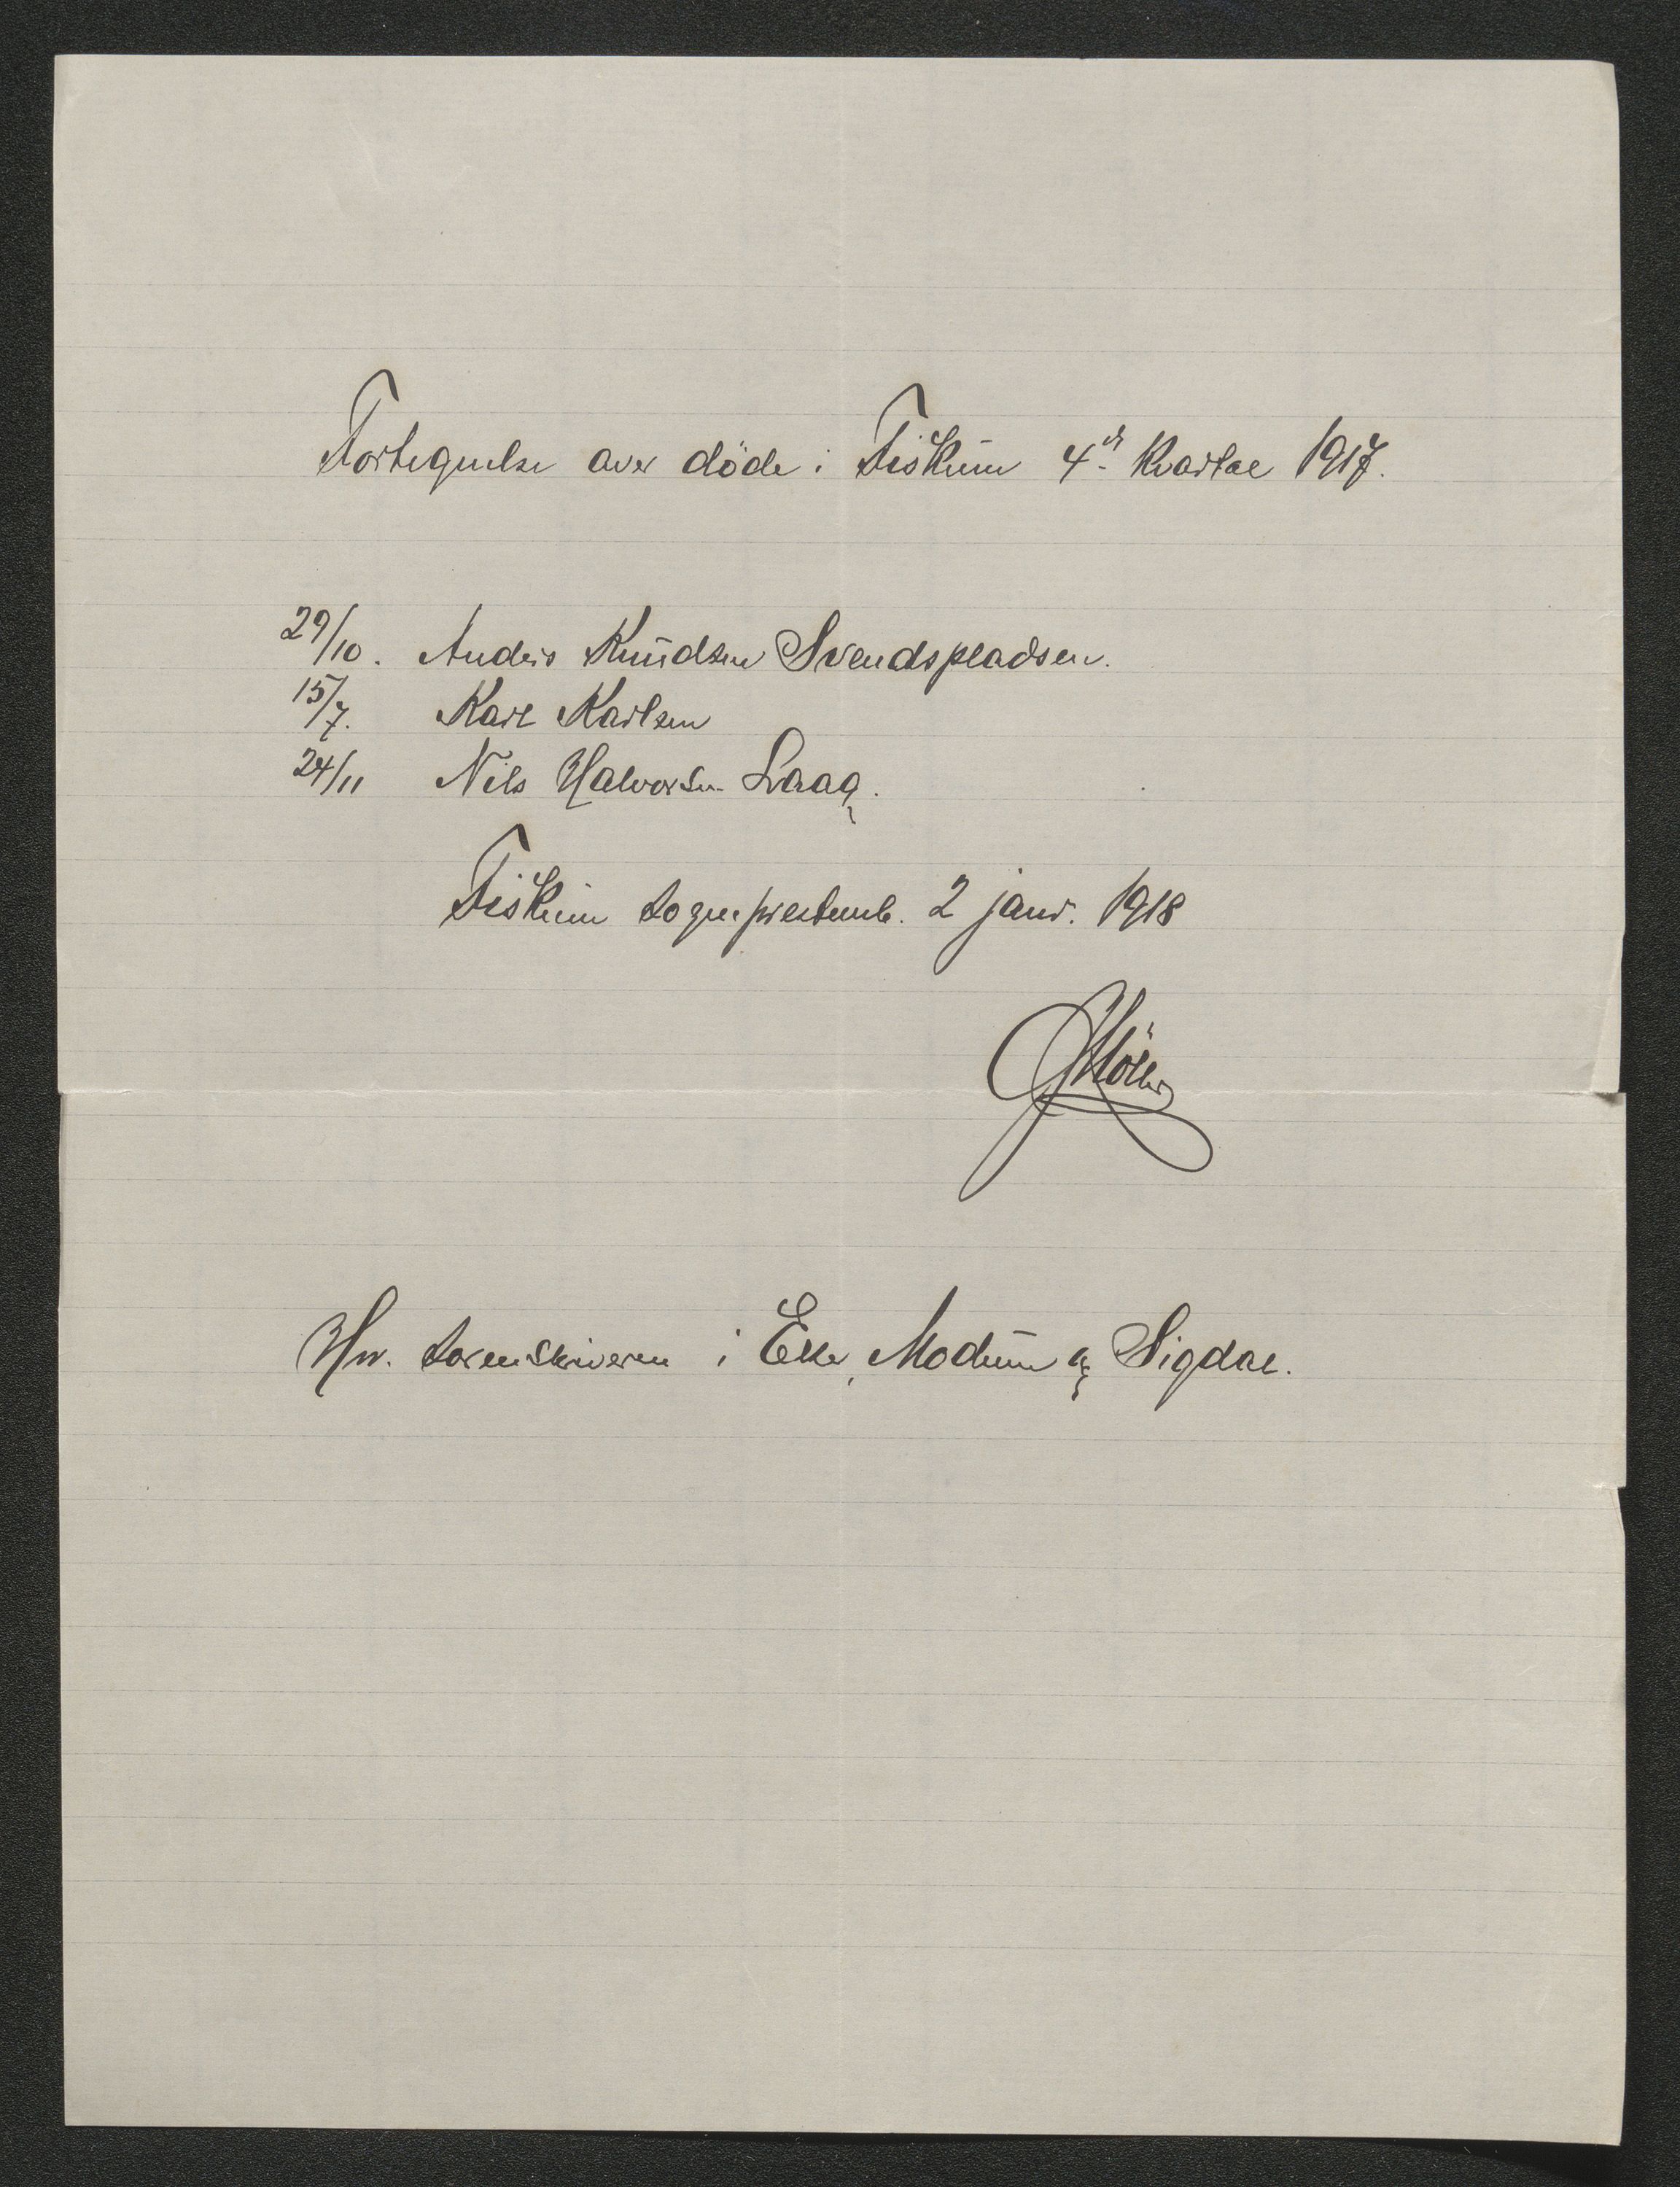 Fortegnelse over döde i Fiskum 4de Kvartal 1917.
29/10. Anders Knudsen Svendspladsen.
15/7. Karl Karlsen
24/11 Nils Halvorsen Laag.
Fiskum sogneprestemb. 2 janr. 1918
Möller
Hr. Sorenskriveren i Eker, Modum og Sigdal.